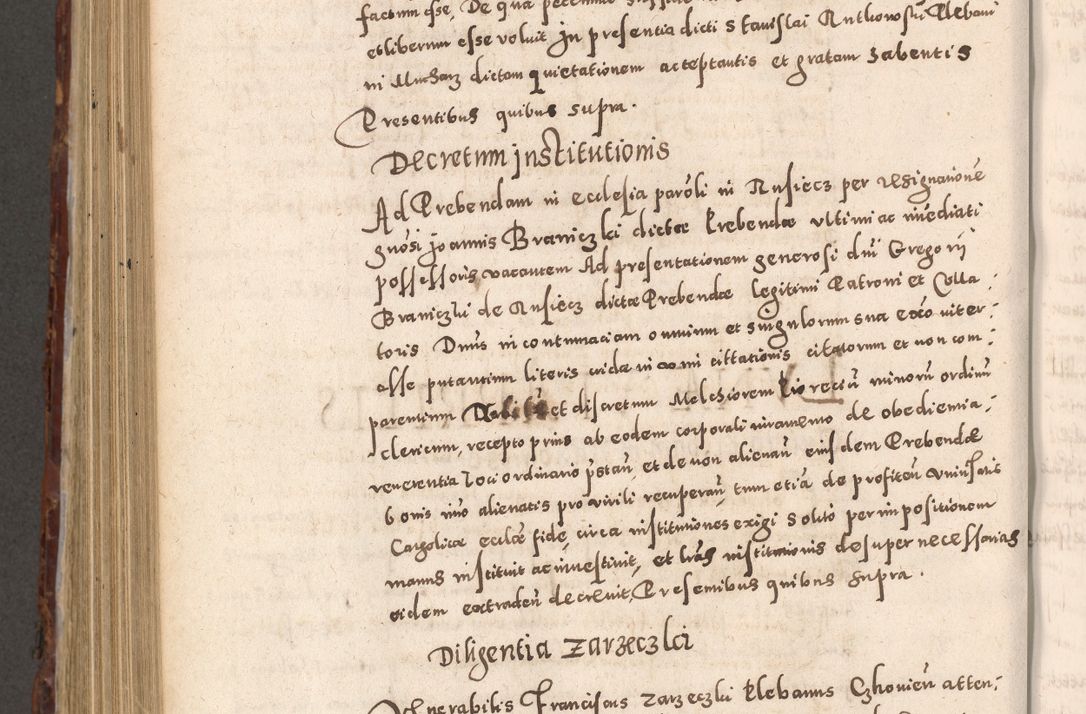 factum esse, De qua
et liberum esse voluit In presentia dicti Stanislai Rutkowski Plebani
in Mucharz dictam quietationem acceptantis et gratam habentis
Presentibus quibus supra.
Decretum institutionis
Ad Prebendam in ecclesia paroli in Rusiecz per resignationē
gnōsi Joannis Braniczki dictæ Prebendæ ultimi ac imēdiati
possessoris vacantem Ad presentationem generosi dnī Gregorii
Braniczki de Rusiecz dictæ Prebendæ legitimi Patroni et Colla:
toris Dnus in contumaciam omnium et singulorum sua excō inter:
esse putantium literis cridæ in citationis citatorum et non com:
parentium et discretum Melchiorem minorū ordinū
clericum, recepto prius ab eodem corporali iuramento de obedientia:
reverentia loci ordinario pstan̄, et de non alienan̄ eiusdem Prebendæ
bonis imo alienatis pro virili recuperan̄, tum etiā de profiten̄ universalis
Catholicæ ecclæ fide, circa institutiones exigi solito per impositionem
manus instituit ac investivit, et lrās institutionis desuper necessarias
eidem extraden̄ decrevit, Presentibus quibus supra.
Diligentia Zarzeczki
Venerabilis Franciscus Zarzeczki Plebanus Czhovien̄ atten: